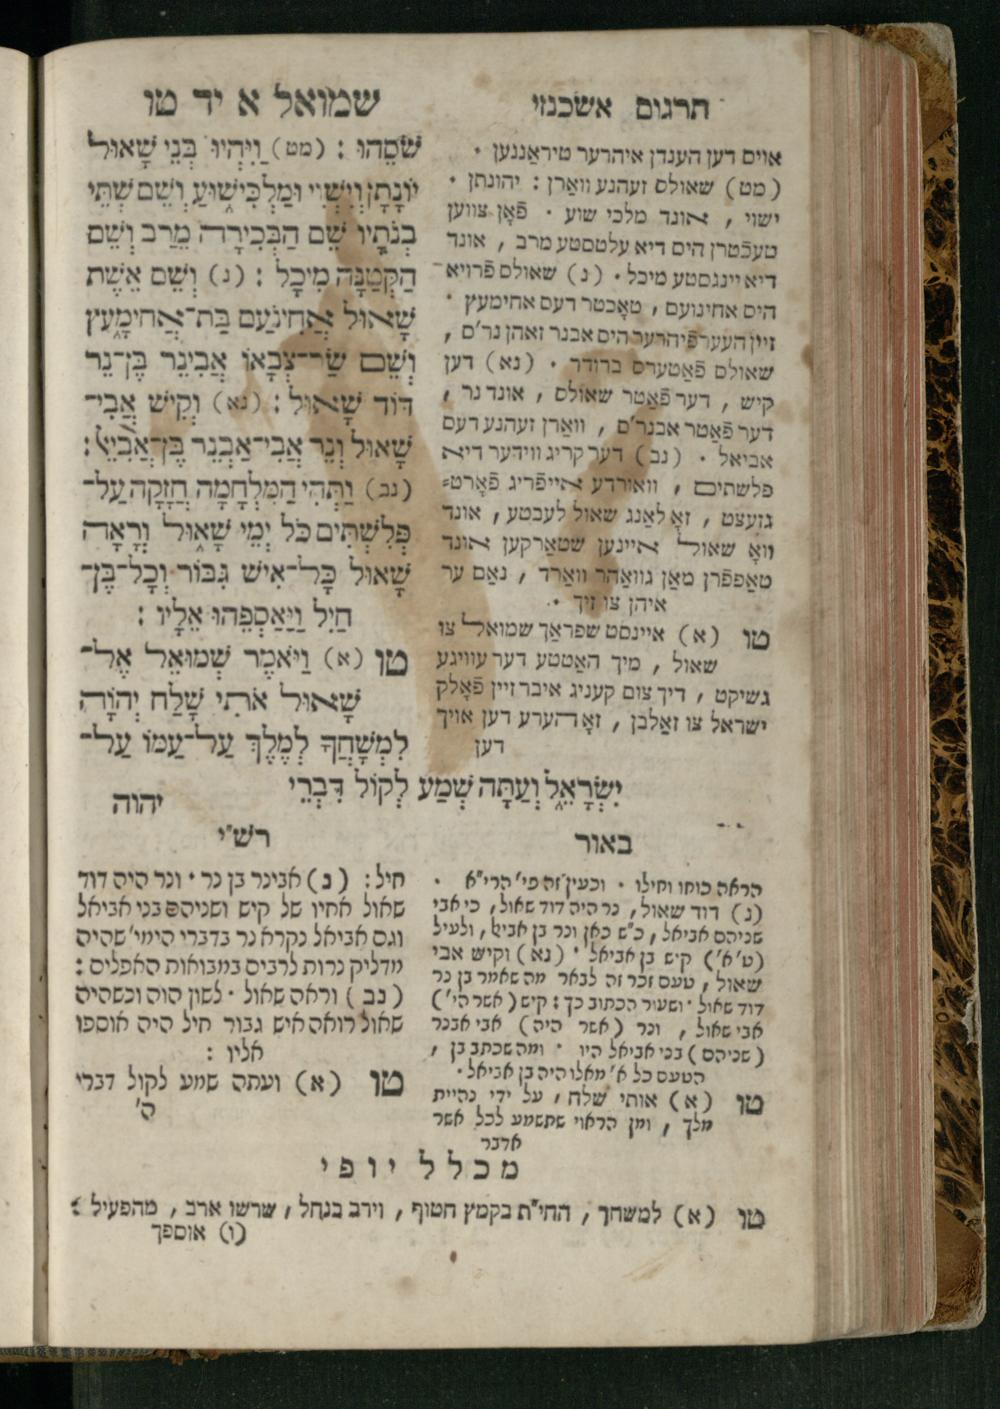 תרגום אשכנזי
שמואל א יד טו
שֹׁסֵהוּ : (מט) וַיִּהְיוּ בְּנֵי שָׁאוּל
יוֹנָתָן וְיִשְׁוִי וּמַלְכִּי־שׁוּעַ וְשֵׁם שְׁתֵּי
בְנֹתָיו שֵׁם הַבְּכִירָה מֵרַב וְשֵׁם
הַקְּטַנָּה מִיכָל : (נ) וְשֵׁם אֵשֶׁת
שָׁאוּל אֲחִינֹעַם בַּת־אֲחִימָעַץ
וְשֵׁם שַׂר־צְבָאוֹ אֲבִינֵר בֶּן־נֵר
דּוֹד שָׁאוּל : (נא) וְקִישׁ אֲבִי־
שָׁאוּל וְנֵר אֲבִי־אַבְנֵר בֶּן־אֲבִיאֵל :
(נב) וַתְּהִי הַמִּלְחָמָה חֲזָקָה עַל־
פְּלִשְׁתִּים כֹּל יְמֵי שָׁאוּל וְרָאָה
שָׁאוּל כָּל־אִישׁ גִּבּוֹר וְכָל־בֶּן־
חַיִל וַיַּאַסְפֵהוּ אֵלָיו :
טו (א) וַיֹּאמֶר שְׁמוּאֵל אֶל־
שָׁאוּל אֹתִי שָׁלַח יְהוָֹה
לִמְשָׁחֳךָ לְמֶלֶךְ עַל־עַמּוֹ עַל־
יִשְׂרָאֵל וְעַתָּה שְׁמַע לְקוֹל דִּבְרֵי
יהוה
אויס דען הענדן איהרער טיראַננען .
(מט) שאולס זעהנע וואַרן : יהונתן .
ישוי , אונד מלכי שוע . פֿאָן צווען
טעכֿטרן היס דיא עלטסטע מרב , אונד
דיא יינגסטע מיכל . (נ) שאולס פֿרויא
היס אחינועם , טאָכטר דעס אחימעץ .
זיין העערפֿיהרער היס אבנר זאהן נר'ס ,
שאולס פֿאַטערס ברודר . (נא) דען
קיש , דער פֿאַטר שאולס , אונד נר ,
דער פֿאַטר אבנר'ס , וואַרן זעהנע דעס
אביאל . (נב) דער קריג ווידער דיא
פלשתים , וואורדע אייפֿריג פֿאָרט=
געזעצט , זאָ לאַנג שאול לעבטע , אונד
וואָ שאול איינען שטאַרקען אונד
טאַפפֿרן מאַן געוואַהר וואַרד , נאַם ער
איהן צו זיך .
טו (א) איינסט שפראַך שמואל צו
שאול , מיך האַטטע דער עוויגע
געשיקט , דיך צום קעניג איבר זיין פֿאָלק
ישראל צו זאַלבן , זאָ הערע דען אויך
דען
רש"י
חיל : (נ) אבינר בן נר . ונר היה דוד
שאול אחיו של קיש ושניהם בני אביאל
וגם אביאל נקרא נר בדברי הימי' שהיה
מדליק נרות לרבים במבואות האפלים :
(נב) וראה שאול . לשון הוה וכשהיה
שאול רואה איש גבור חיל היה אוספו
אליו :
טו (א) ועתה שמע לקול דברי
ה'
באור
הראה כוחו וחילו . וכעין זה פי' הרי"א .
(נ) דוד שאול , נר היה דוד שאול , כי אבי
שניהם אביאל , כ"ש כאן ונר בן אביאל , ולעיל
(ט' א') קיש בן אביאל . (נא) וקיש אבי
שאול , טעם זכר זה לבאר מה שאמר בן נר
דוד שאול . ושעור הכתוב כך : קיש (אשר הי')
אבי שאול , ונר (אשר היה) אבי אבנר
(שניהם) בני אביאל היו . ומה שכתב בן ,
הטעם כל א' מאלו היה בן אביאל .
טו (א) אותי שלח , על ידי נהיית
מלך , ומן הראוי שתשמע לכל אשר
ארבר
מכלל יופי
טו (א) למשחך , החי"ת בקמץ חטוף , וירב בנחל , שרשו ארב , מהפעיל :
(ו) אוספך